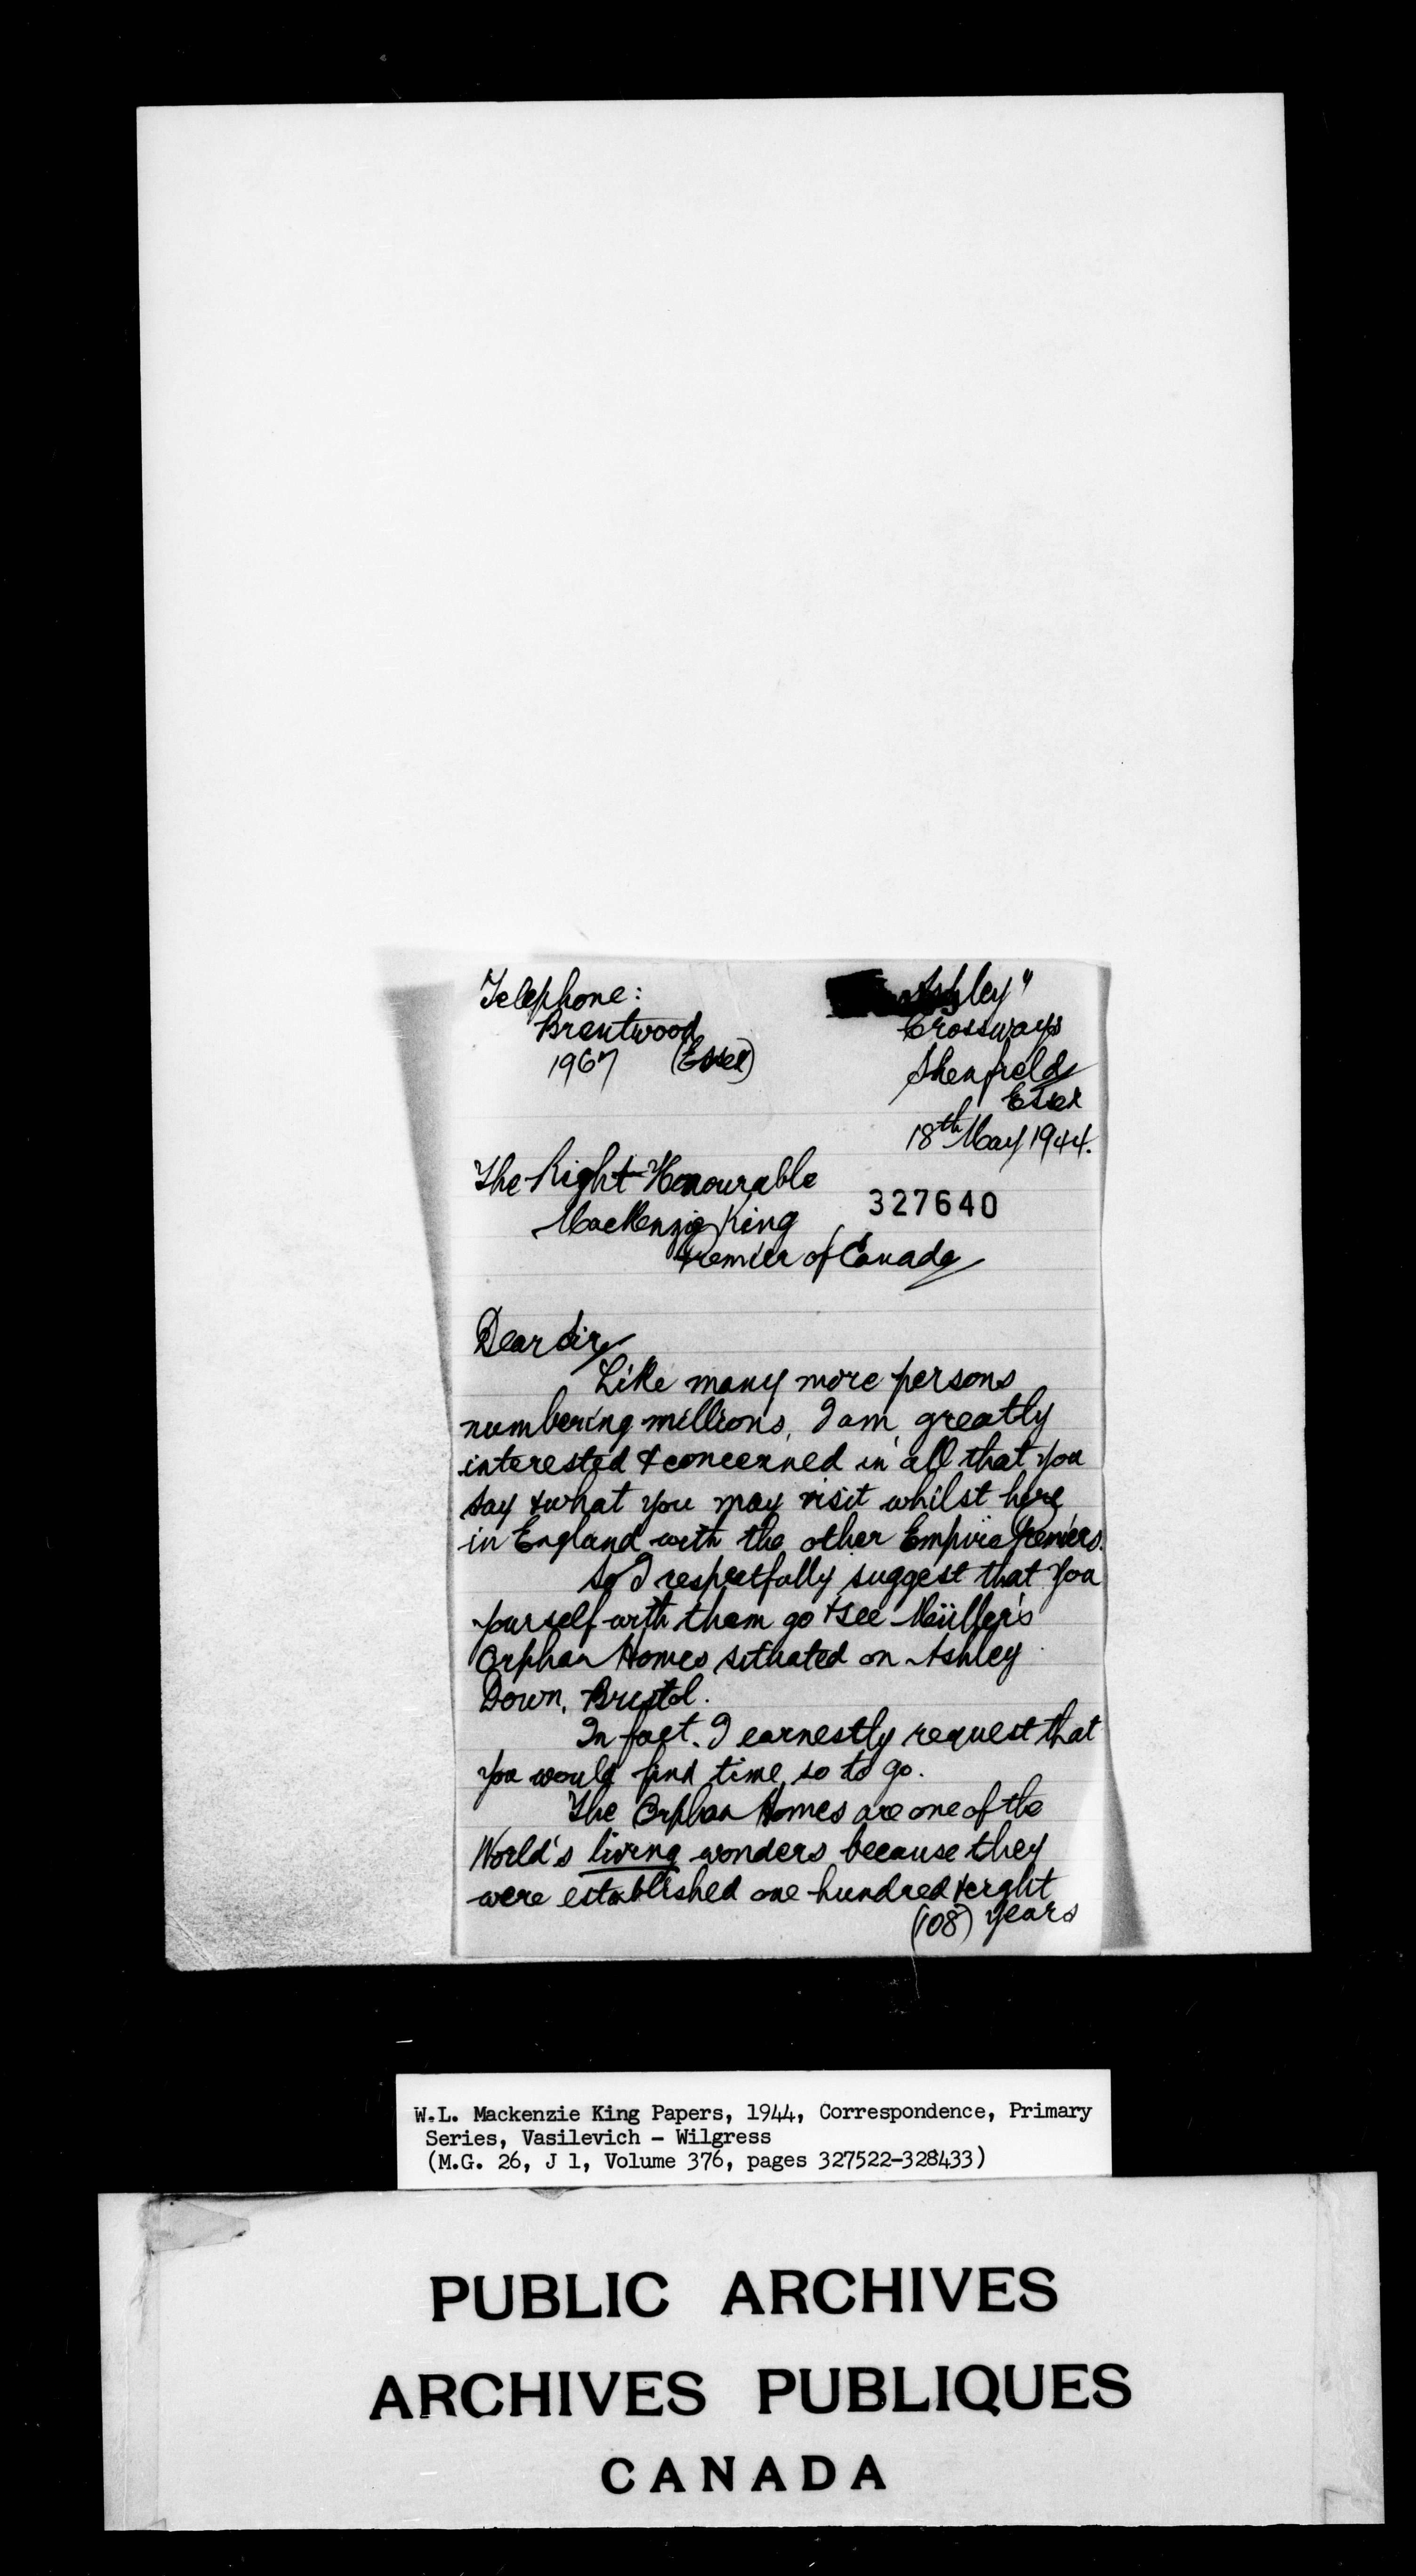 Telephone:
Brentwood
1967 (Essex)
Ashley"
Crossways
Shenfield
Essex
18th May 1944.
The Right Honourable
MacKenzie King
Premier of Canada
327640
Dear Sir,
Like many more persons
numbering millions, I am greatly
interested & concerned in all that you
say & what you may visit whilst here
in England with the other Empire Premiers.
So I respectfully suggest that you
yourself with them go & see Müller's
Orphan Homes situated on Ashley
Down, Bristol.
In fact, I earnestly request that
you would find time so to go.
The Orphan Homes are one of the
World's living wonders because they
were established one hundred & eight
(108) years
W.L. Mackenzie King Papers, 1944, Correspondence, Primary
Series, Vasilevich - Wilgress
(M.G. 26, J 1, Volume 376, pages 327522-328433)
PUBLIC ARCHIVES
ARCHIVES PUBLIQUES
CANADA